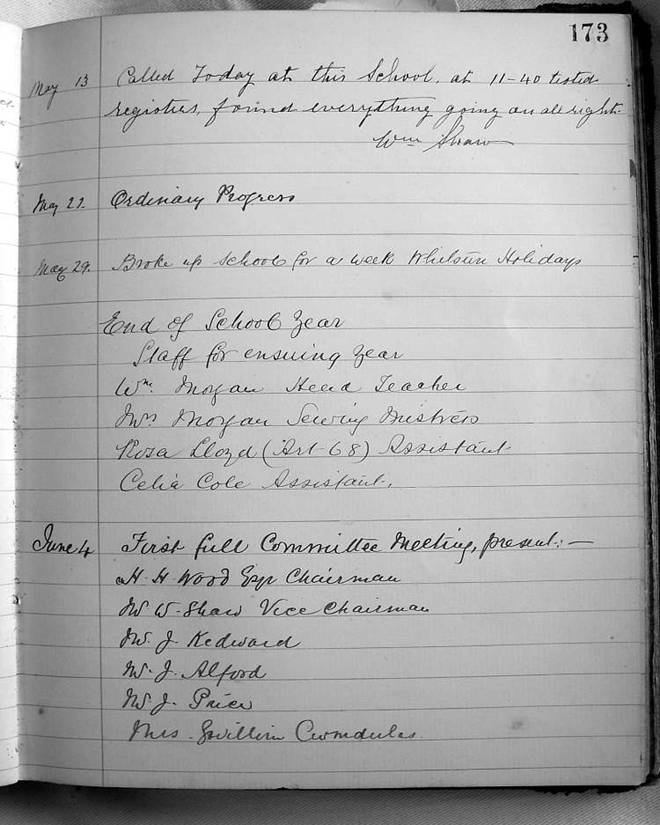 173
May 13 Called Today at this School, at 11-40 tested
registers, found everything going on all right.
Wm Shaw
May 27. Ordinary Progress
May 29. Broke up School for a week Whitsun Holidays
End of School Year
Staff for ensuing Year
Wm. Morgan Head Teacher
Mrs Morgan Sewing Mistress
Rosa Lloyd (Art 68) Assistant
Celia Cole Assistant.
June 4 First full Committee Meeting, present:—
H. H Wood Esqr Chairman
Mr W. Shaw Vice Chairman
Mr. J. Kedward
Mr. J. Alford
Mr. J. Price
Mrs. Gwillim